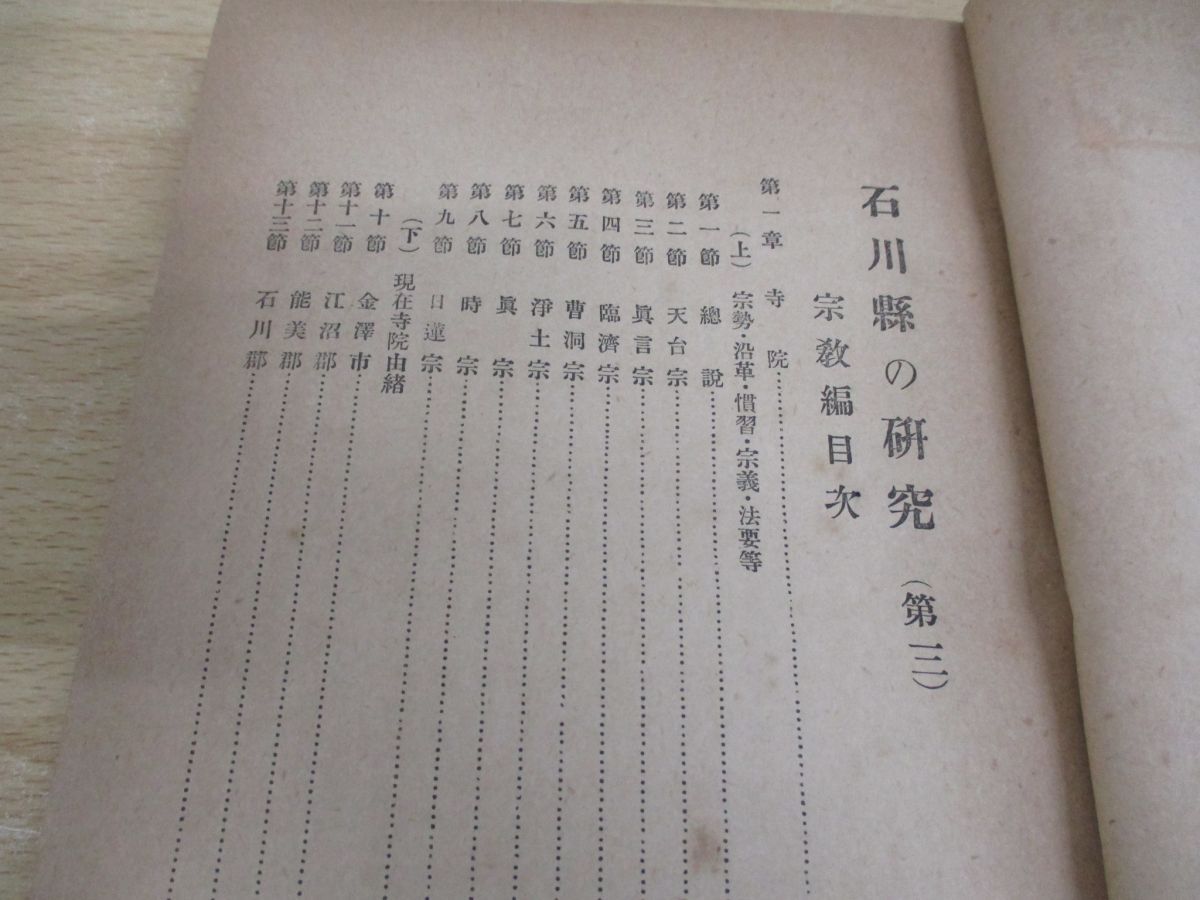 石川縣の研究(第三)
宗教編目次
第一章 寺院
(上) 宗勢・沿革・慣習・宗義・法要等
第一節 總說
第二節 天台宗
第三節 眞言宗
第四節 臨濟宗
第五節 曹洞宗
第六節 淨土宗
第七節 眞宗
第八節 時宗
第九節 日蓮宗
(下) 現在寺院由緒
第十節 金澤市
第十一節 江沼郡
第十二節 能美郡
第十三節 石川郡